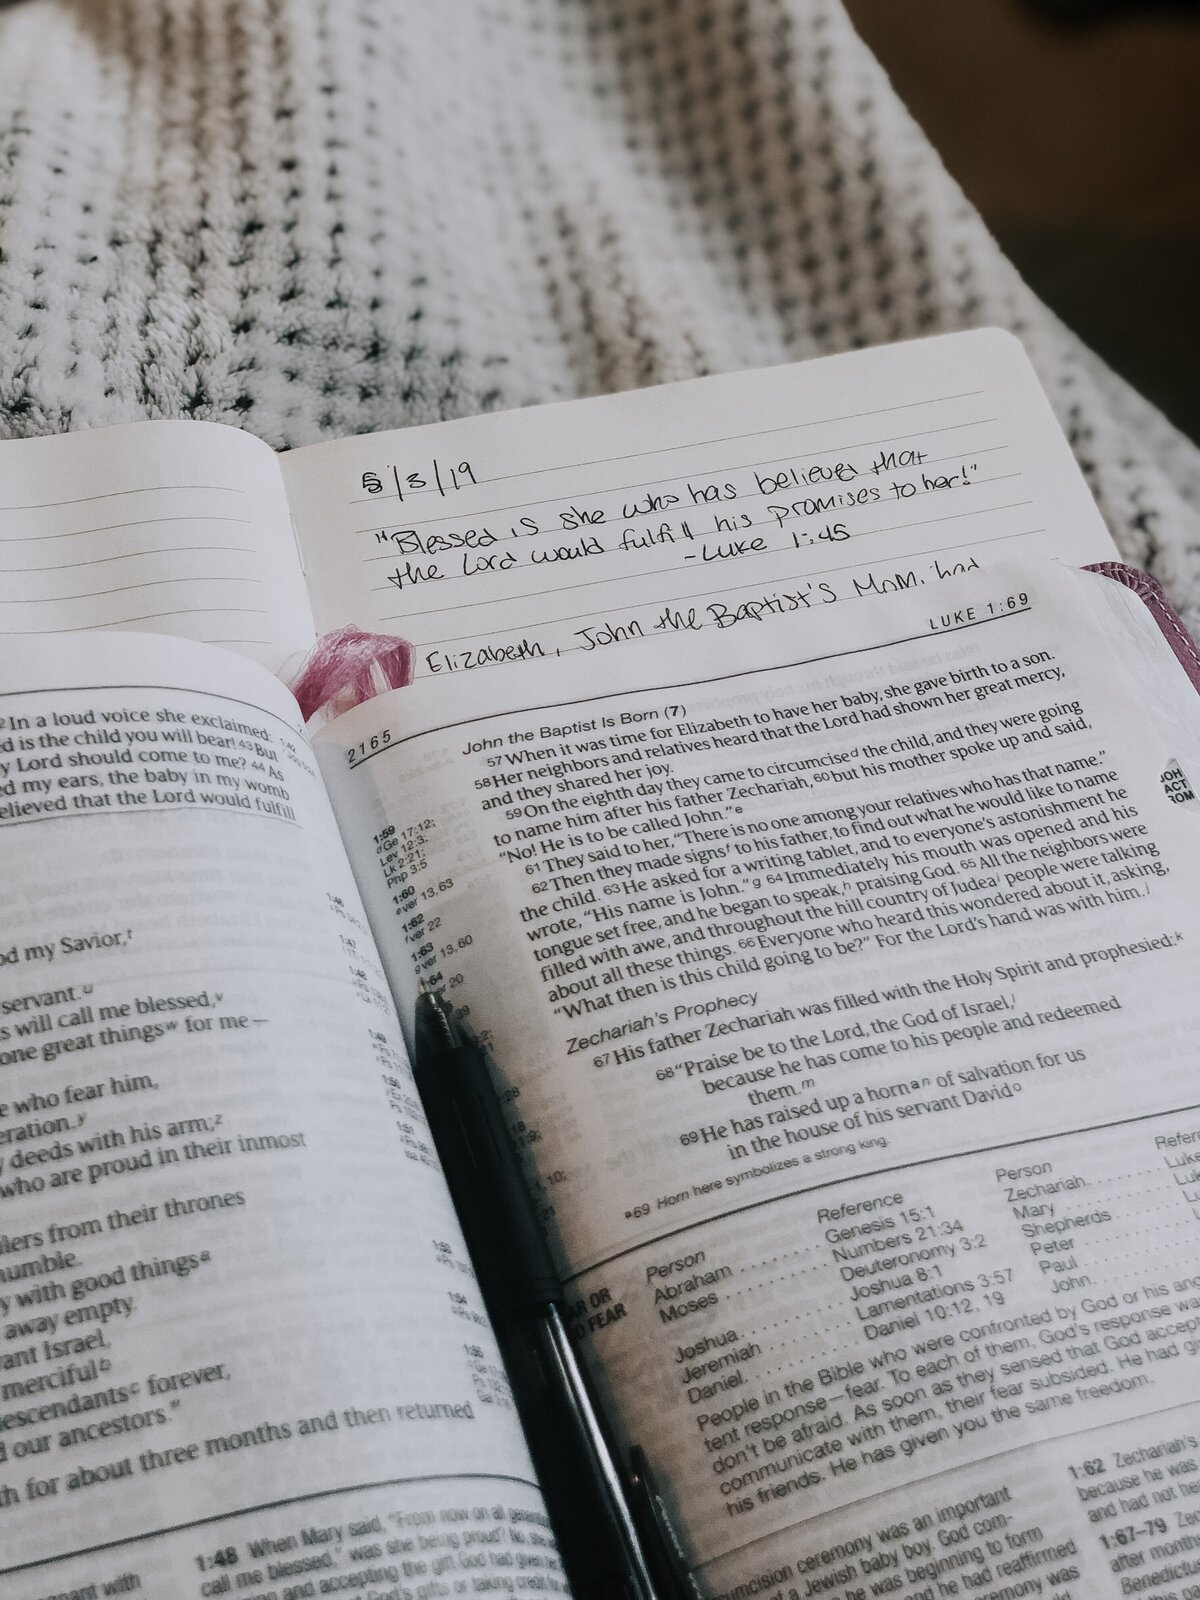 5/3/19
"Blessed is she who has believed that
the Lord would fulfill his promises to her!"
-Luke 1:45
Elizabeth, John the Baptist's Mom, had
In a loud voice she exclaimed:
is the child you will bear! 43 But
Lord should come to me? 44 As
my ears, the baby in my womb
believed that the Lord would fulfill
my Savior,t
servant.u
will call me blessed,v
great thingsw for me—
who fear him,
deeds with his arm;z
who are proud in their inmost
from their thrones
with good thingsa
away empty.
Israel,
mercifulb
descendantsc forever,
our ancestors."
for about three months and then returned
1:48 When Mary said, "From now on all
call me blessed," was she being proud? No,
and accepting the gift God had given
with
2165
LUKE 1:69
John the Baptist Is Born (7)
57 When it was time for Elizabeth to have her baby, she gave birth to a son.
58 Her neighbors and relatives heard that the Lord had shown her great mercy,
and they shared her joy.
59 On the eighth day they came to circumcised the child, and they were going
to name him after his father Zechariah, 60 but his mother spoke up and said,
"No! He is to be called John."e
61 They said to her, "There is no one among your relatives who has that name."
62 Then they made signsf to his father, to find out what he would like to name
the child. 63 He asked for a writing tablet, and to everyone's astonishment he
wrote, "His name is John."g 64 Immediately his mouth was opened and his
tongue set free, and he began to speak,h praising God. 65 All the neighbors were
filled with awe, and throughout the hill country of Judeai people were talking
about all these things. 66 Everyone who heard this wondered about it, asking,
"What then is this child going to be?" For the Lord's hand was with him.j
Zechariah's Prophecy
67 His father Zechariah was filled with the Holy Spirit and prophesied:k
68 "Praise be to the Lord, the God of Israel,l
because he has come to his people and redeemed
them.m
69 He has raised up a hornan of salvation for us
in the house of his servant Davido
a69 Horn here symbolizes a strong king.
1:59
dGe 17:12;
Lev 12:3;
Lk 2:21;
Php 3:5
1:60
ever 13,63
1:62
fver 22
1:63
gver 13,60
OR
FEAR
Person Reference
Abraham Genesis 15:1
Moses Numbers 21:34
Deuteronomy 3:2
Joshua Joshua 8:1
Jeremiah Lamentations 3:57
Daniel Daniel 10:12, 19
Person
Zechariah Luke
Mary
Shepherds
Peter
Paul
John
People in the Bible who were confronted by God or his
response—fear. To each of them, God's response
don't be afraid. As soon as they sensed that God
communicate with them, their fear subsided. He had
his friends. He has given you the same freedom.
ceremony was an important
of a Jewish baby boy. God
he was beginning to form
and he had reaffirmed
ceremony was
1:62 Zechariah's
because he was
and had not
1:67–79
after
JOH
ACT
ROM